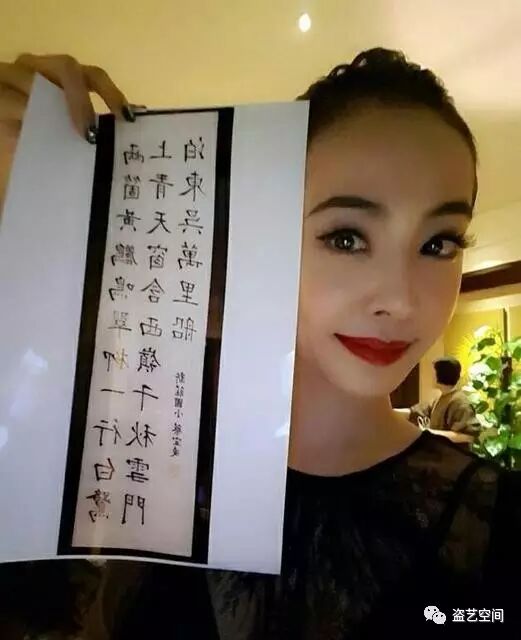 兩箇黃鸝鳴翠柳一行白鷺
上青天窗含西嶺千秋雪門
泊東吳萬里船
新莊國小 蔡宜凌
盗艺空间